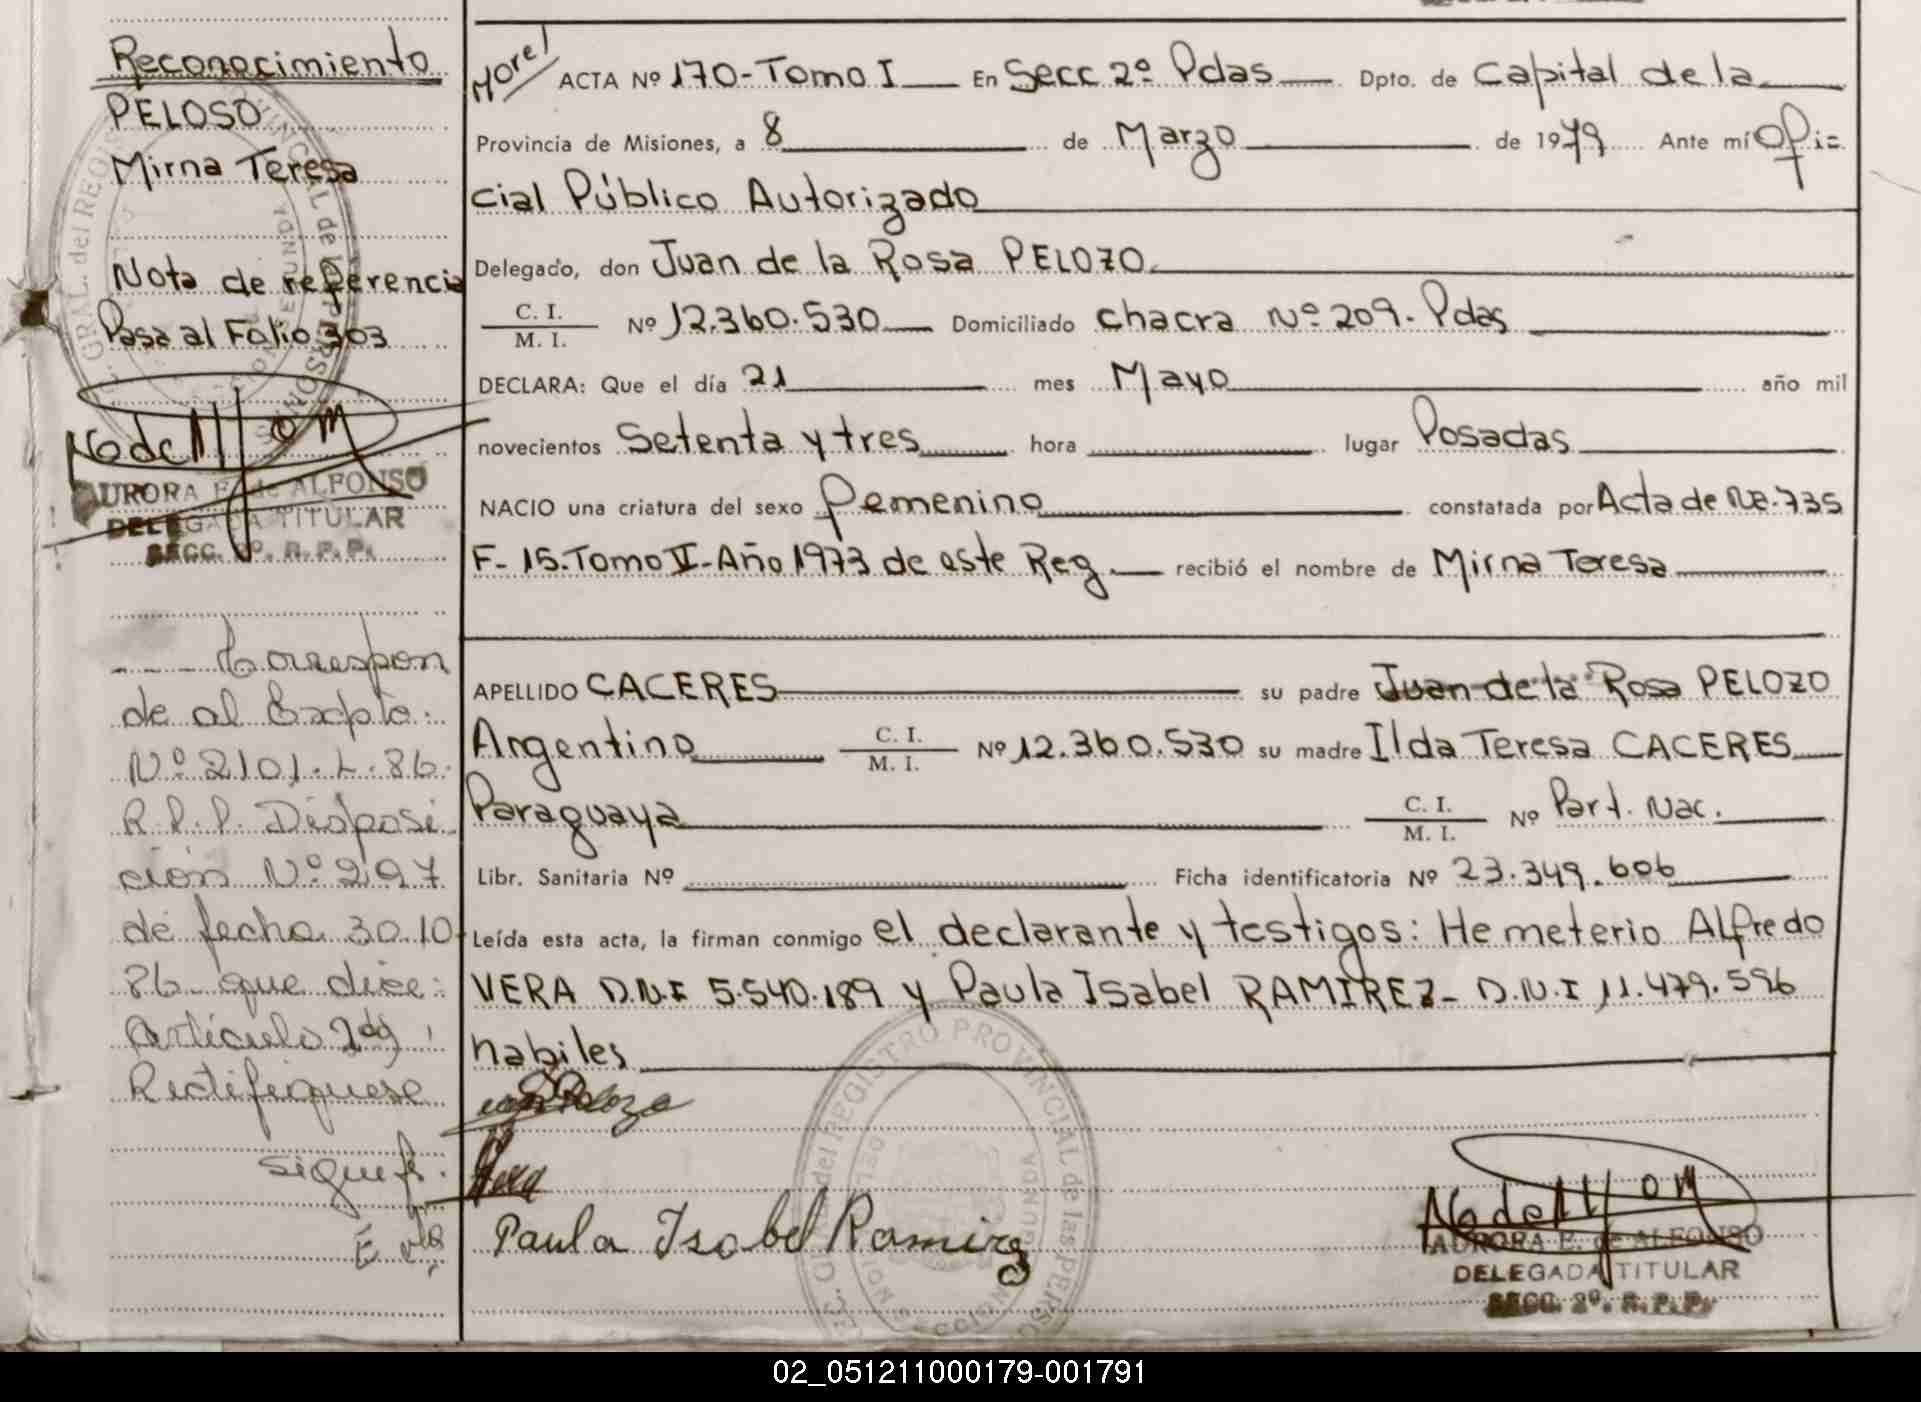 Reconocimiento
PELOSO
Mirna Teresa
Nota de referencia
Pasa al Folio 303
AURORA E. de ALFONSO
DELEGADA TITULAR
SECC. 2º. R. P. P.
Correspon
de al Expte.
Nº 2101.L.86.
R.P.P. Disposi
ción Nº 297
de fecha 30.10
86 que dice:
Artículo 2do)
Rectifiquese
sigue fs.
ACTA Nº 170-Tomo I En Secc 2º Pdas Dpto. de Capital de la
Provincia de Misiones, a 8 de Marzo de 1979 Ante mí Ofi=
cial Público Autorizado
Delegado, don Juan de la Rosa PELOZO
C. I.
M. I. Nº 12.360.530 Domiciliado chacra Nº 209. Pdas
DECLARA: Que el día 21 mes Mayo año mil
novecientos Setenta y tres hora lugar Posadas
NACIO una criatura del sexo femenino constatada por Acta de Nº.735
F-15.Tomo II-Año 1973 de este Reg. recibió el nombre de Mirna Teresa
APELLIDO CACERES su padre Juan de la Rosa PELOZO
Argentino C. I.
M. I. Nº 12.360.530 su madre Ilda Teresa CACERES
Paraguaya C. I.
M. I. Nº Part. Nac.
Libr. Sanitaria Nº Ficha identificatoria Nº 23.349.606
Leída esta acta, la firman conmigo el declarante y testigos: Hemeterio Alfredo
VERA D.N.I 5.540.189 y Paula Isabel RAMIREZ- D.N.I 11.479.596
habiles
Pelozo
Vera
Paula Isabel Ramirez
AURORA E. de ALFONSO
DELEGADA TITULAR
SECC. 2º. R. P. P.
02_051211000179-001791